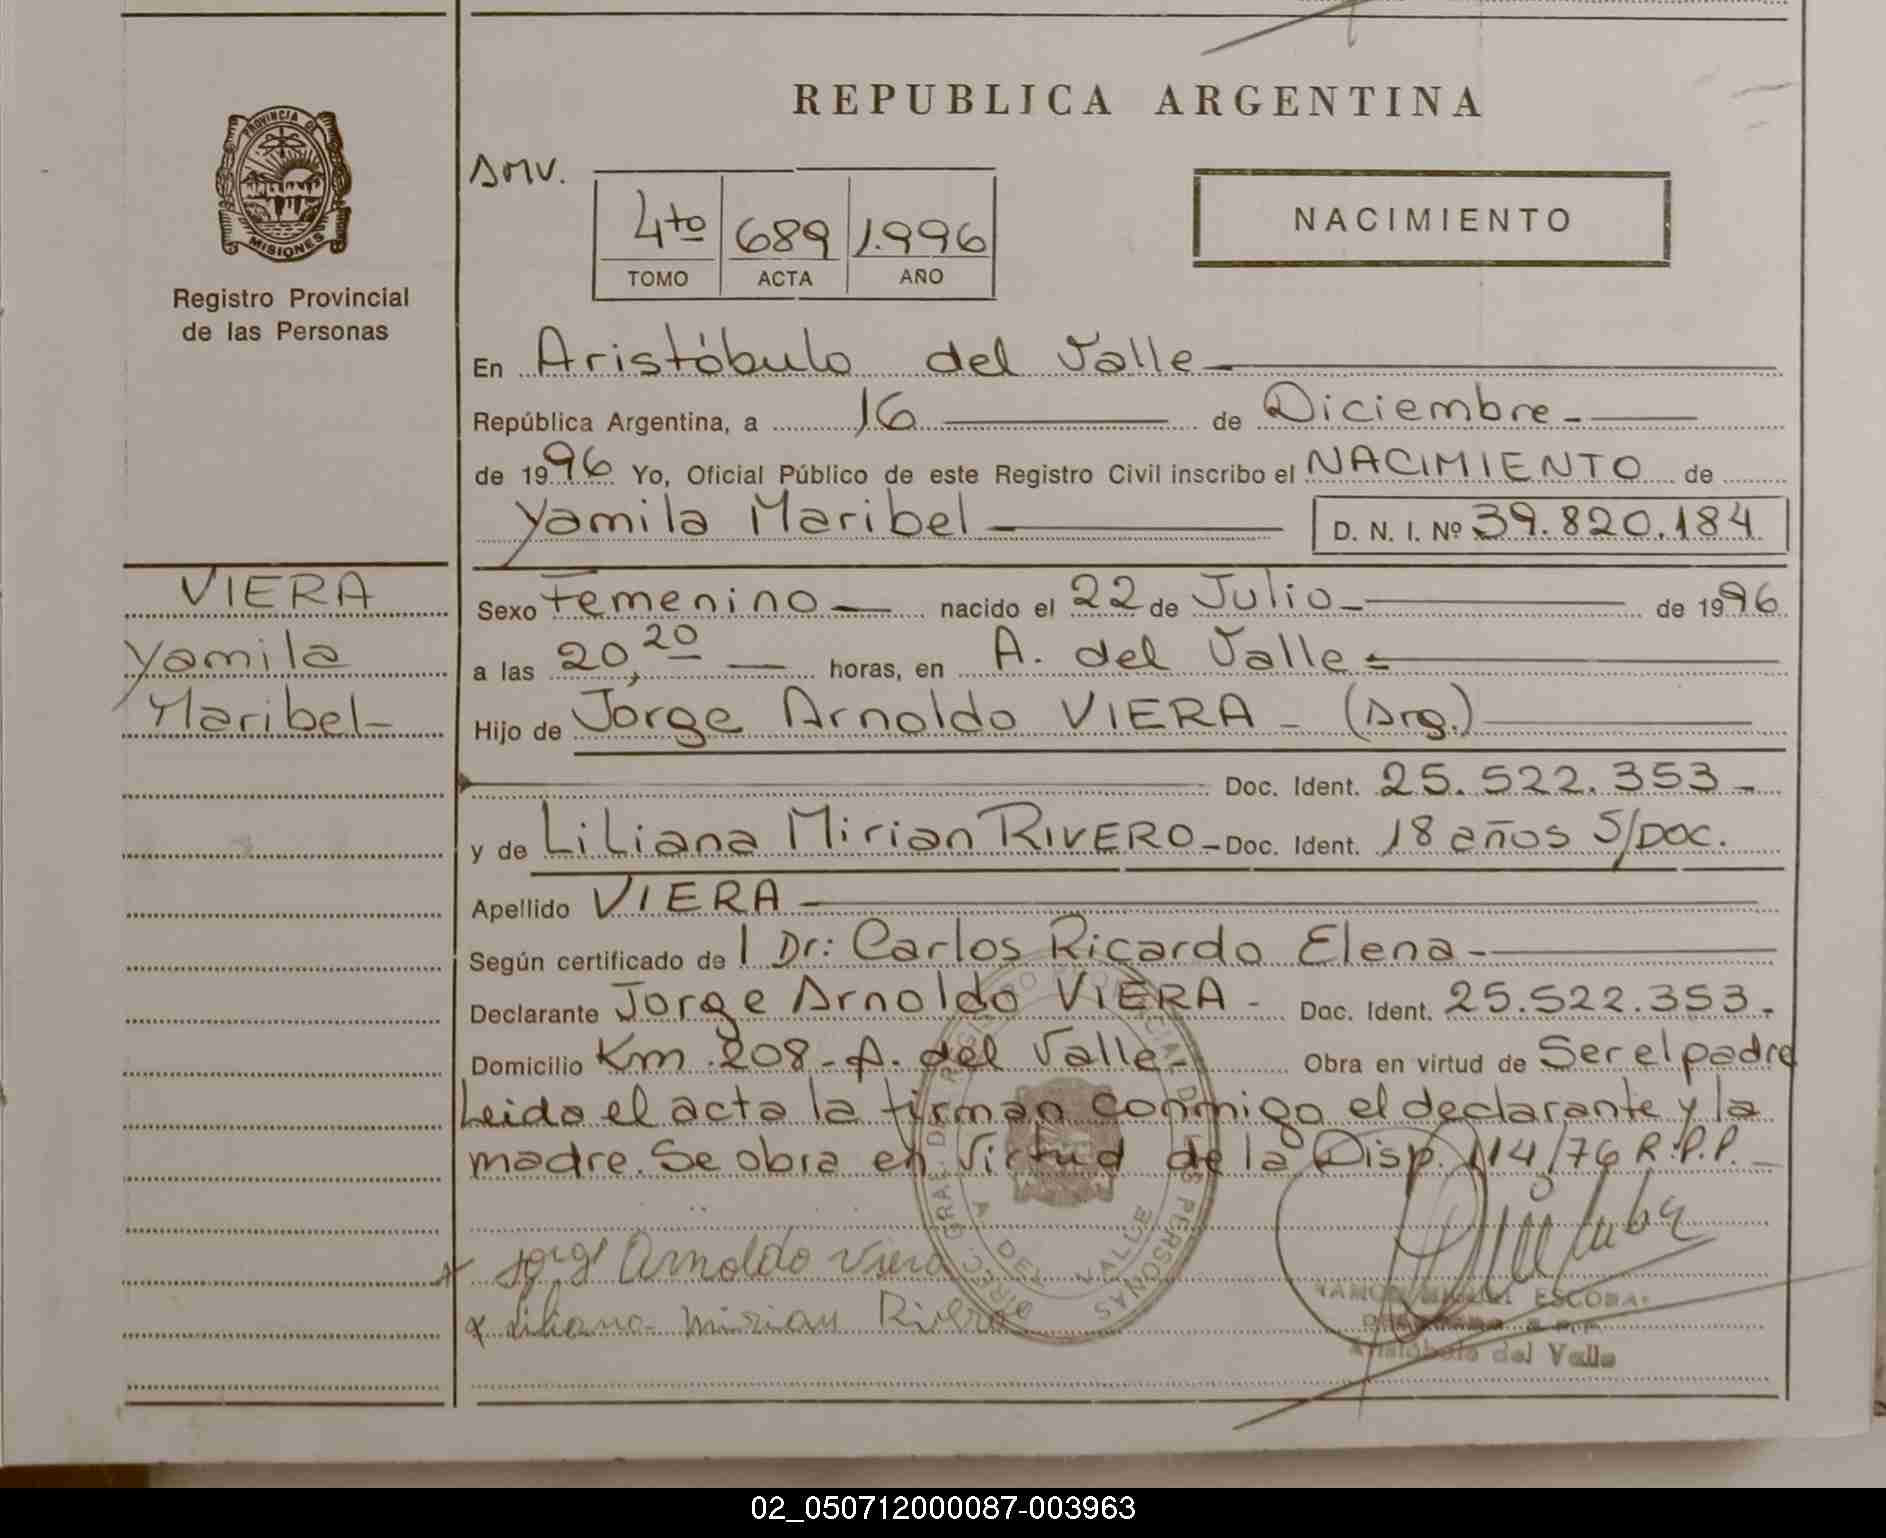 REPUBLICA ARGENTINA
PROVINCIA DE
MISIONES
Registro Provincial
de las Personas
AMV.
4to 689 1.996
TOMO ACTA AÑO
NACIMIENTO
En Aristóbulo del Valle
República Argentina, a 16 de Diciembre
de 1996 Yo, Oficial Público de este Registro Civil inscribo el NACIMIENTO de
Yamila Maribel D. N. I. Nº 39.820.184
VIERA
Yamila
Maribel
Sexo Femenino nacido el 22 de Julio de 1996
a las 20,20 horas, en A. del Valle
Hijo de Jorge Arnoldo VIERA - (Arg.)
Doc. Ident. 25.522.353
y de Liliana Mirian RIVERO Doc. Ident. 18 años S/DOC.
Apellido VIERA
Según certificado de l Dr: Carlos Ricardo Elena
Declarante Jorge Arnoldo VIERA - Doc. Ident. 25.522.353
Domicilio Km 208 - A. del Valle Obra en virtud de Ser el padre
Leido el acta la firman conmigo el declarante y la
madre. Se obra en Virtud de la Disp. 114/76 R.P.P.
DIREC. GRAL. DEL REGISTRO PROVINCIAL DE LAS PERSONAS
A. DEL VALLE
x Jorge Arnoldo Viera
x Liliana Mirian Rivero
ESCOBAR
Aristóbulo del Valle
02_050712000087-003963